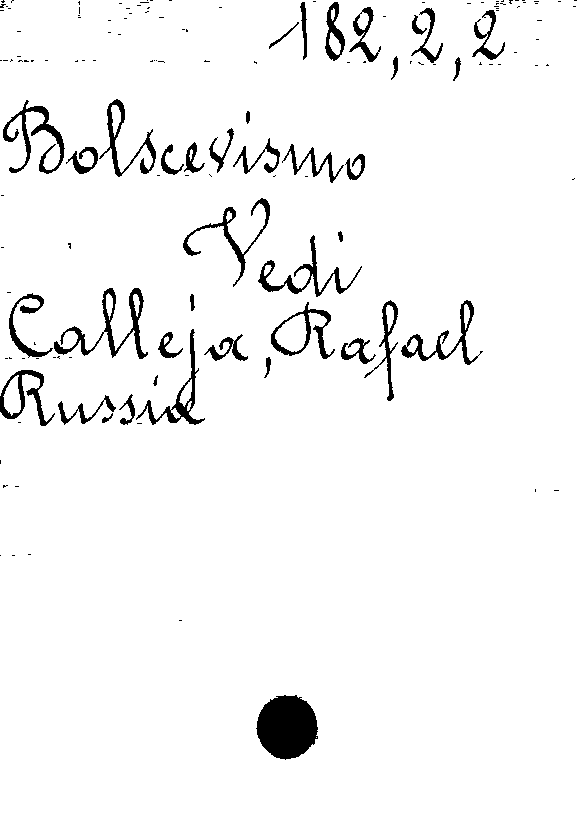 182,2,2
Bolscevismo
Vedi
Calleja, Rafael
Russia